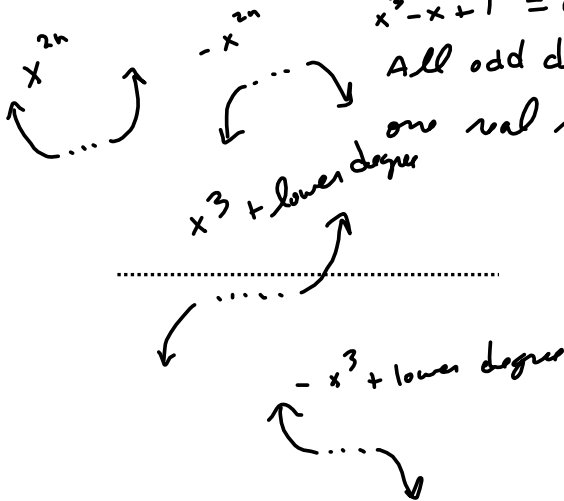 x^{2n}
- x^{2n}
x^3 - x + 1 =
All odd d
one real
x^3 + lower degree
- x^3 + lower degree